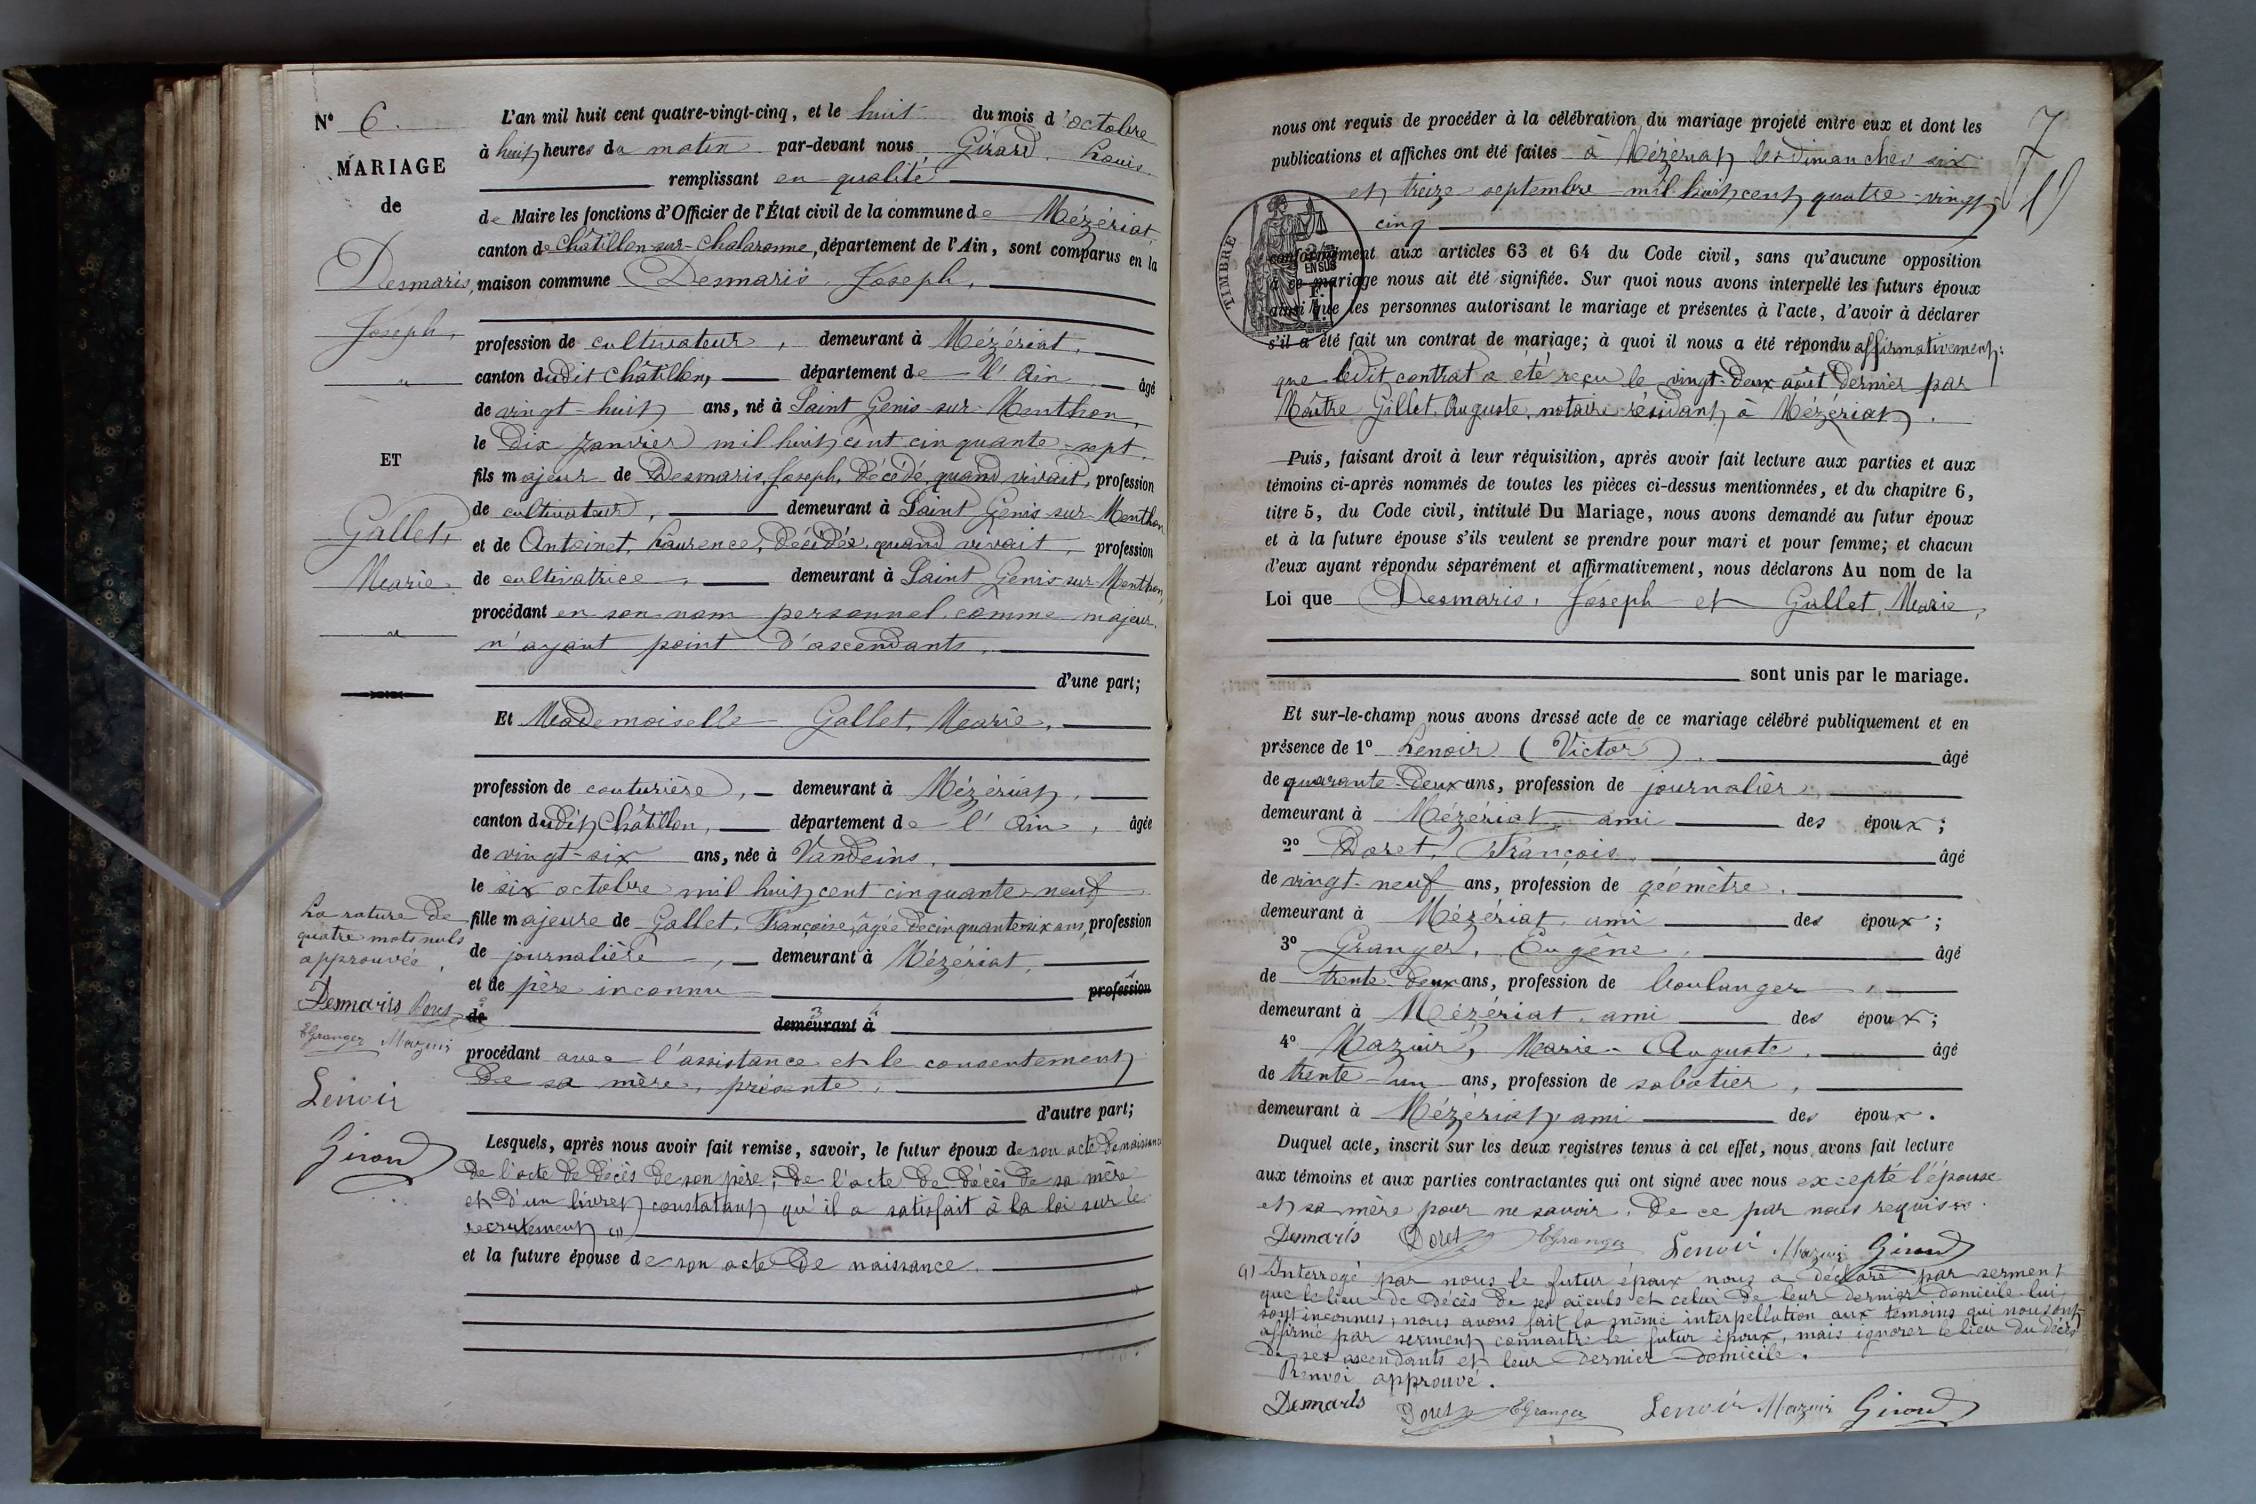 N° 6.
MARIAGE
de
Desmaris,
Joseph,
"
ET
Gallet,
Marie.
"
La rature de
quatre mots nuls
approuvée.
Desmaris Doret
EGranger Mazuir
Lenoir
Girard
L'an mil huit cent quatre-vingt-cinq, et le huit du mois d'octobre
à huit heures du matin par-devant nous Girard, Louis.
remplissant en qualité
de Maire les fonctions d'Officier de l'État civil de la commune de Mézériat,
canton de Châtillon-sur-Chalaronne, département de l'Ain, sont comparus en la
maison commune Desmaris, Joseph,
profession de cultivateur, demeurant à Mézériat,
canton dudit Châtillon, département de l'Ain, âgé
de vingt-huit ans, né à Saint Genis-sur-Menthon,
le dix janvier mil huit cent cinquante-sept,
fils majeur de Desmaris, Joseph, décédé, quand vivait, profession
de cultivateur, demeurant à Saint Genis-sur-Menthon
et de Antoinet, Laurence, décédée, quand vivait, profession
de cultivatrice, demeurant à Saint Genis-sur-Menthon,
procédant en son nom personnel comme majeur,
n'ayant point d'ascendants,
d'une part;
Et Mademoiselle Gallet, Marie,
profession de couturière, demeurant à Mézériat,
canton dudit Châtillon, département de l'Ain, âgée
de vingt-six ans, née à Vandeins,
le six octobre mil huit cent cinquante-neuf
fille majeure de Gallet, Françoise, âgée de cinquante-six ans, profession
de journalière, demeurant à Mézériat,
et de père inconnu profession
de demeurant à
procédant avec l'assistance et le consentement
de sa mère, présente,
d'autre part;
Lesquels, après nous avoir fait remise, savoir, le futur époux de son acte de naissance
de l'acte de décès de son père; de l'acte de décès de sa mère
et d'un livret constatant qu'il a satisfait à la loi sur le
recrutement (1)
et la future épouse de son acte de naissance.
7
nous ont requis de procéder à la célébration du mariage projeté entre eux et dont les
publications et affiches ont été faites à Mézériat les dimanches six
et treize septembre mil huit cent quatre-vingt
cinq
TIMBRE
2/10 EN SUS
conformément aux articles 63 et 64 du Code civil, sans qu'aucune opposition
à ce mariage nous ait été signifiée. Sur quoi nous avons interpellé les futurs époux
ainsi que les personnes autorisant le mariage et présentes à l'acte, d'avoir à déclarer
s'il a été fait un contrat de mariage; à quoi il nous a été répondu affirmativement:
que ledit contrat a été reçu le vingt-deux août dernier par
Maître Gillet, Auguste, notaire résidant à Mézériat.
Puis, faisant droit à leur réquisition, après avoir fait lecture aux parties et aux
témoins ci-après nommés de toutes les pièces ci-dessus mentionnées, et du chapitre 6,
titre 5, du Code civil, intitulé Du Mariage, nous avons demandé au futur époux
et à la future épouse s'ils veulent se prendre pour mari et pour femme; et chacun
d'eux ayant répondu séparément et affirmativement, nous déclarons Au nom de la
Loi que Desmaris, Joseph et Gallet, Marie,
sont unis par le mariage.
Et sur-le-champ nous avons dressé acte de ce mariage célébré publiquement et en
présence de 1° Lenoir (Victor), âgé
de quarante-deux ans, profession de journalier
demeurant à Mézériat, ami des époux;
2° Doret, François, âgé
de vingt-neuf ans, profession de géomètre,
demeurant à Mézériat, ami des époux;
3° Granger, Eugène, âgé
de trente-deux ans, profession de boulanger,
demeurant à Mézériat, ami des époux;
4° Mazuir, Marie-Auguste, âgé
de trente-un ans, profession de sabotier,
demeurant à Mézériat, ami des époux.
Duquel acte, inscrit sur les deux registres tenus à cet effet, nous avons fait lecture
aux témoins et aux parties contractantes qui ont signé avec nous excepté l'épouse
et sa mère pour ne savoir, de ce par nous requises.
Desmaris Doret EGranger Lenoir Mazuir Girard
(1) Interrogé par nous le futur époux nous a déclaré par serment
que le lieu de décès de ses aïeuls et celui de leur dernier domicile lui
sont inconnus; nous avons fait la même interpellation aux témoins qui nous ont
affirmé par serment connaître le futur époux, mais ignorer le lieu du décès
de ses ascendants et leur dernier domicile.
Renvoi approuvé.
Desmaris Doret EGranger Lenoir Mazuir Girard